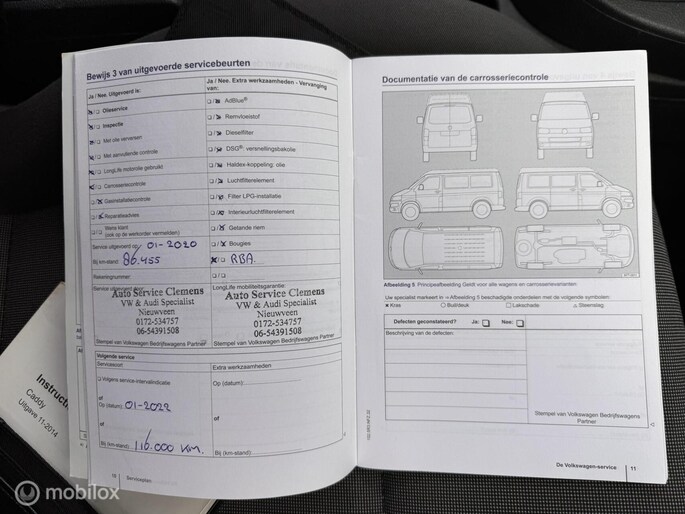 Bewijs 3 van uitgevoerde servicebeurten
Ja / Nee. Uitgevoerd is:
Ja / Nee. Extra werkzaamheden - Vervanging van:
Olieservice
Inspectie
Met olie verversen
Met aanvullende controle
LongLife motorolie gebruikt
Carrosseriecontrole
Gasinstallatiecontrole
Reparatieadvies
Mains klant
(ook op de werkorder vermelden)
Service uitgevoerd op: 01-2020
Bij km-stand: 86.455
Rekeningnummer:
Service uitgevoerd door:
Auto Service Clemens
VW & Audi Specialist
Nieuwveen
0172-534757
06-54391508
Stempel van Volkswagen Bedrijfswagens Partner
AdBlue®
Remvloeistof
Dieselfilter
DSG®: versnellingsbakolie
Haldex-koppeling: olie
Luchtfilterelement
Filter LPG-installatie
Interieurluchtfilterelement
Getande riem
Bougies
RBA.
LongLife mobiliteitsgarantie:
Auto Service Clemens
VW & Audi Specialist
Nieuwveen
0172-534757
06-54391508
Stempel van Volkswagen Bedrijfswagens Partner
Volgende service
Servicesoort:
Volgens service-intervalindicatie
of
Op (datum): 01-2022
of
Bij (km-stand: 116.000 KM.
Extra werkzaamheden
Op (datum):
of
Bij (km-stand):
10 Serviceplan
Documentatie van de carrosseriecontrole
Afbeelding 5 Principeafbeelding Geldt voor alle wagens en carrosserievarianten
Uw specialist markeert in ⇒Afbeelding 5 beschadigde onderdelen met de volgende symbolen:
Kras Buil/deuk Lakschade Steenslag
Defecten geconstateerd? Ja: Nee:
Beschrijving van de defecten:
Stempel van Volkswagen Bedrijfswagens
Partner
De Volkswagen-service 11
Caddy
Uitgave 11-2014
© mobilox